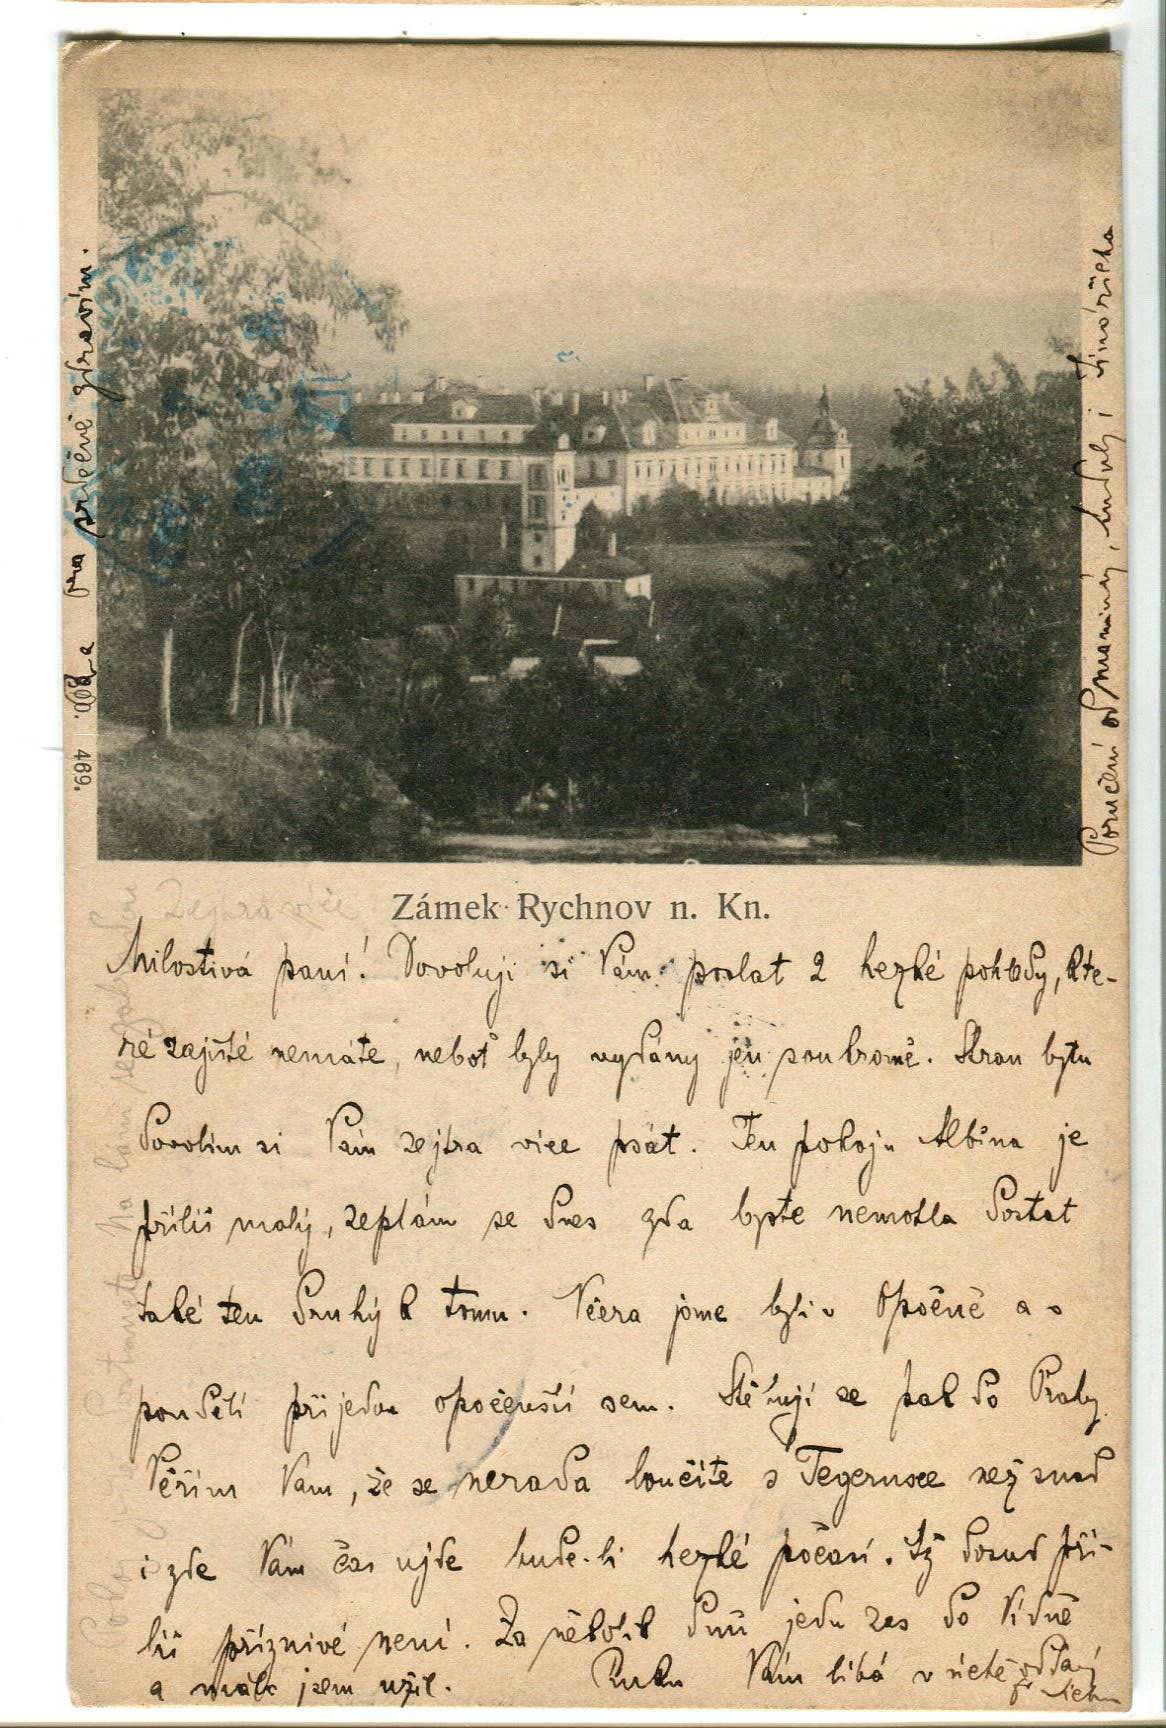 Zámek Rychnov n. Kn.
Milostivá paní! Dovoluji si Vám poslat 2 hezké pohledy, kte-
ré zajisté nemáte, neboť byly vydány jen soukromě. Stran bytu
dovolím si Vám zejtra více psát. Ten pokoj u Albína je
příliš malý, zeptám se dnes zda byste nemohla dostat
také ten druhý k tomu. Včera jsme byli v Opočně a v
pondělí přijedou opočenští sem. Stěhují se pak do Prahy
Věřím Vám, že se nerada loučíte s Tegernsee než snad
i zde Vám čas ujde bude-li hezké počasí. Až dosud pří-
liš příznivé není. Za několik dnů jedu zas do Vídně
a málo jsem užil. Ruku Vám líbá v úctě oddaný
Poručení od maminky,
srdečně zdravím.
469.